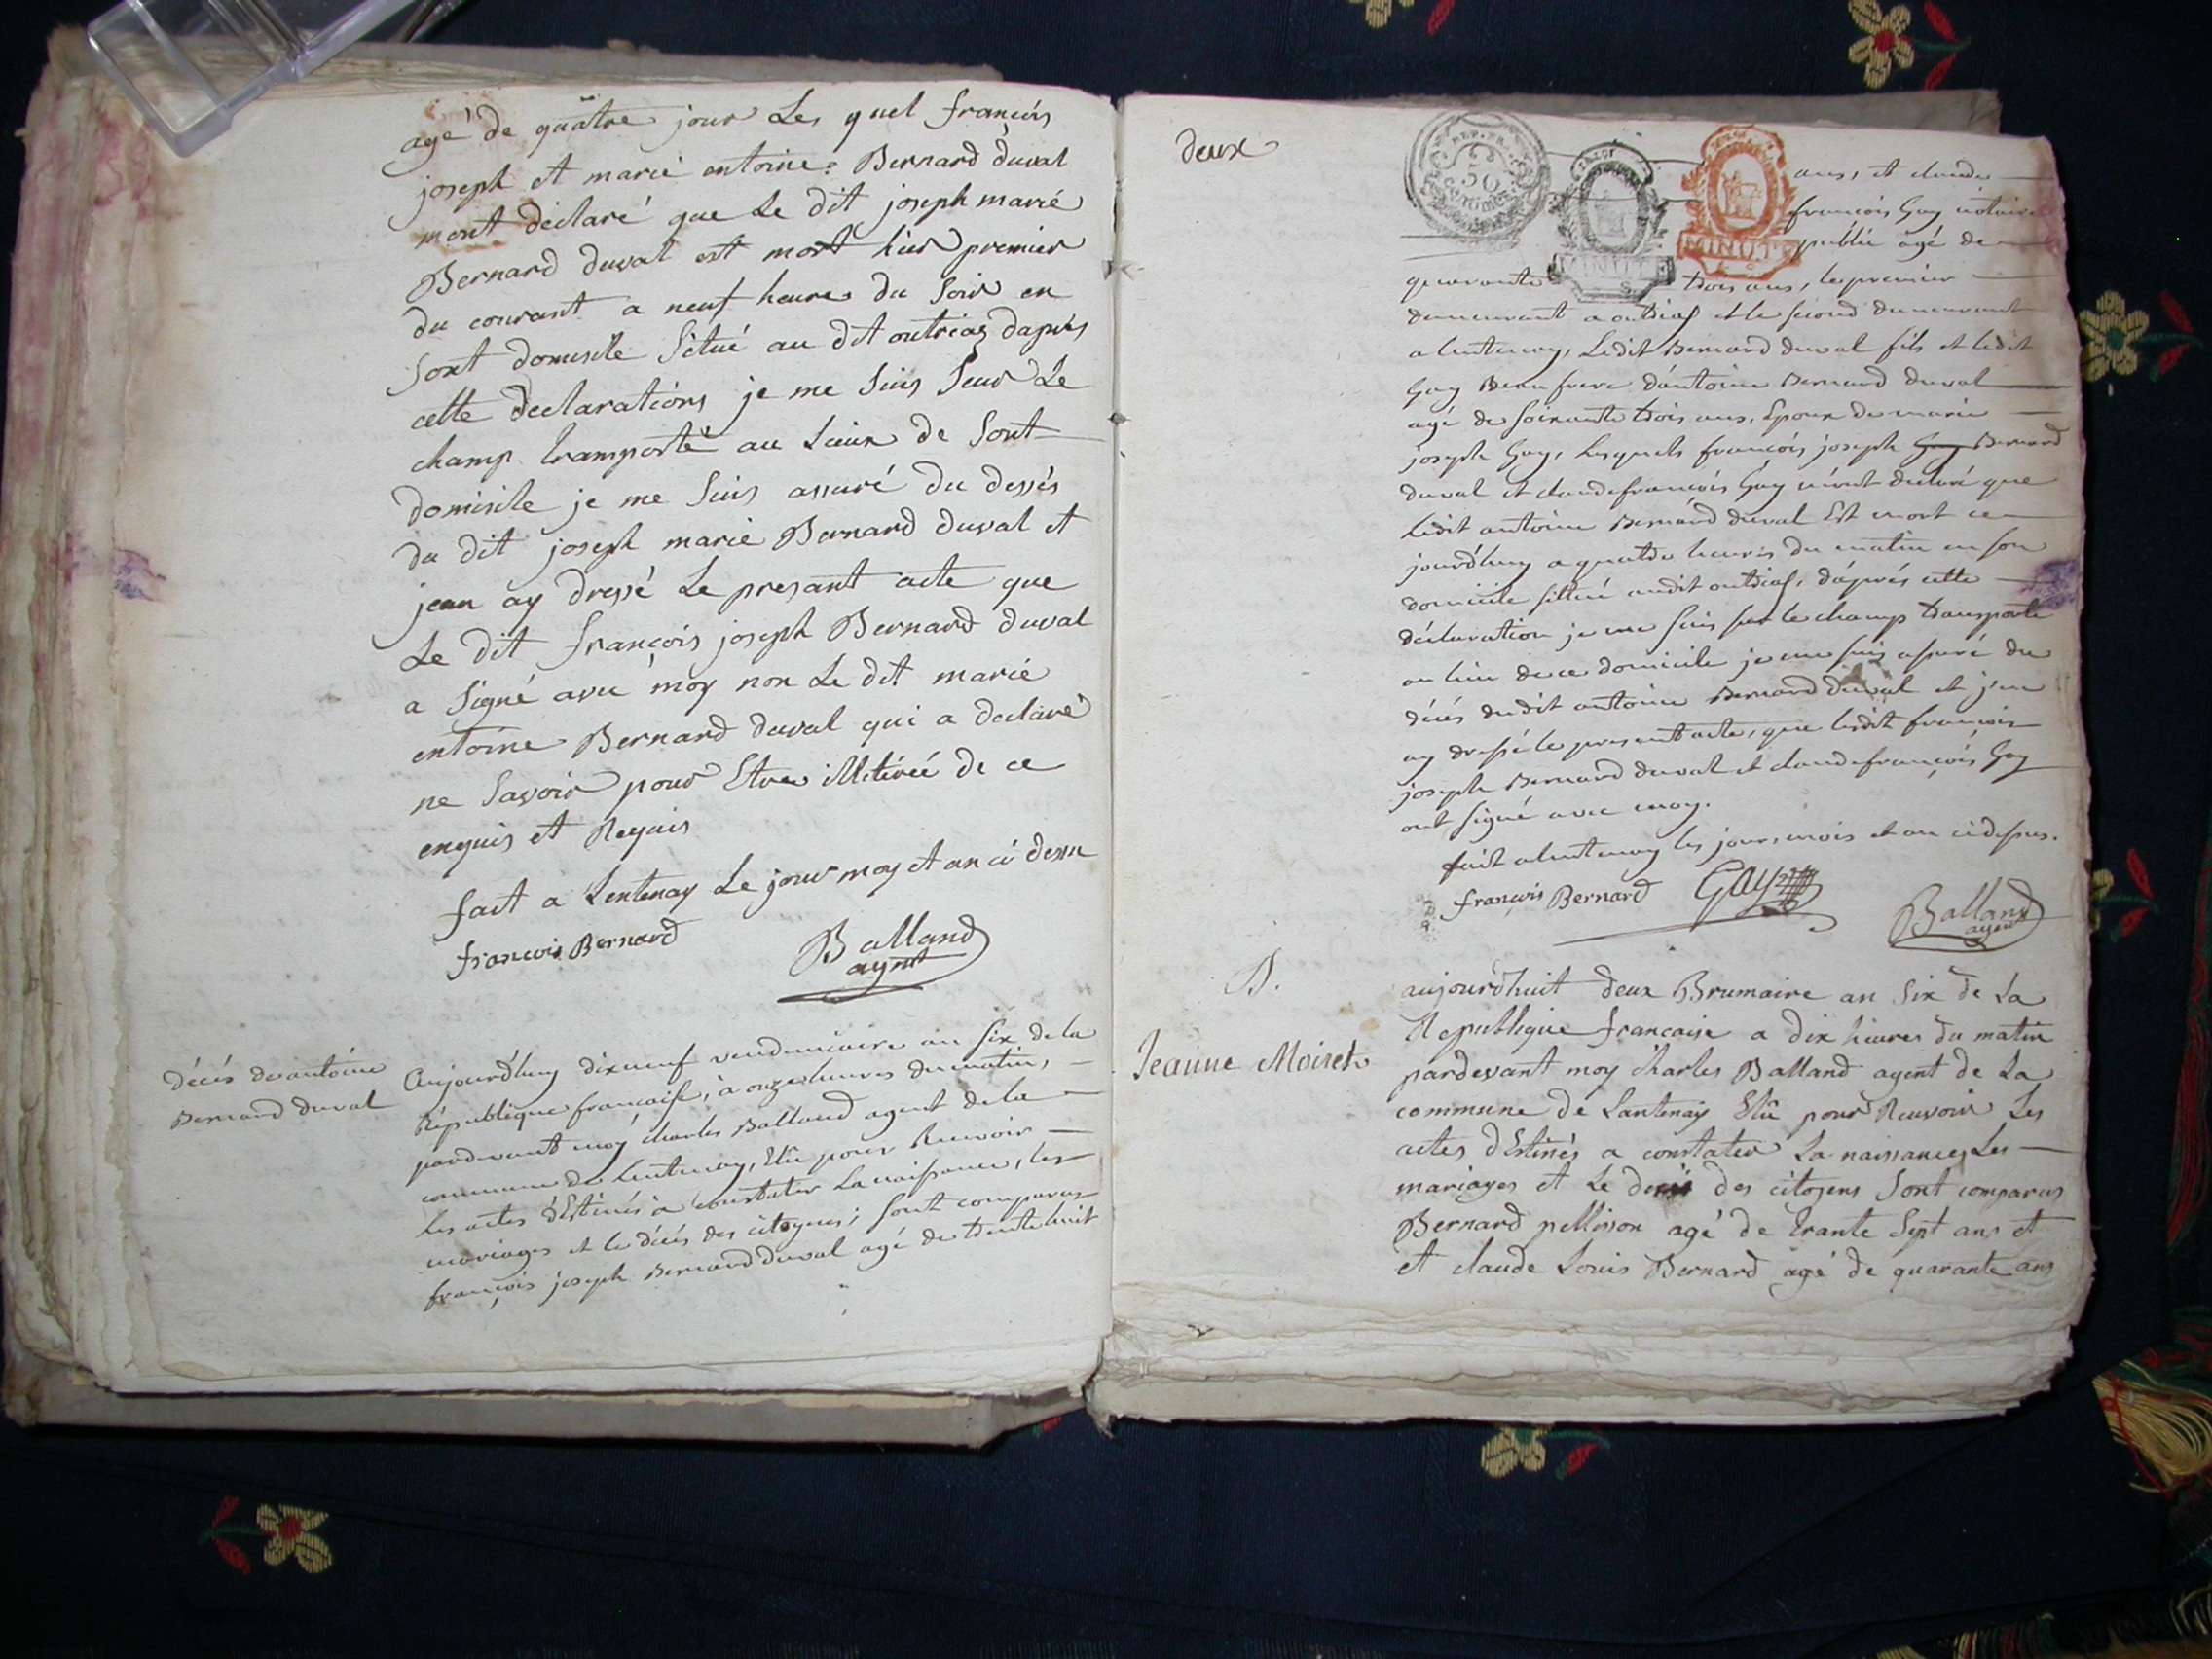 agé de quatre jour Les quel françois
joseph et marie entoine Bernard duval
mont déclaré que Le dit joseph marie
Bernard duval est mort hier premier
du courant a neuf heures du Soir en
Sont domicile Situé au dit outriaz dapres
cette declarations je me Suis Seur Le
champ tramporté au Lieux de Sont
domicile je me Suis assuré du dessés
du dit joseph marie Bernard duval et
jean ay dressé Le presant acte que
Le dit françois joseph Bernard duval
a Signé avec moy non Le dit marie
entoine Bernard duval qui a declaré
ne Savoir pour Etre illitérée de ce
enquis et Requis
fait a Lentenay Le jour moy et an ci desu
francois Bernard
Balland
agent
décés de antoine
Bernard duval
Aujourd'huy dixneuf vendemiaire an Six de la
République françoise, à onze heures du matin,
pardevant moy charles Balland agent de la
commune de Lentenay, Elû pour Recevoir
les actes déstinés à constater La naissance, les
mariages et le décés des citoyens; sont comparus
françois joseph Bernard duval agé de trente huit
deux
REP. FRA.
50
centimes
MINUTE
MINUTE
ans, et claude
françois Gay notaire
public agé de
quarante trois ans, le premier
demeurant a outriaz et le second demeurant
a lentenay, Ledit Bernard duval fils et ledit
Gay Beaufrere d'antoine Bernard duval
agé de soixante trois ans, Epoux de marie
joseph Gay, Lesquels françois joseph Gay Bernard
duval et claude françois Gay m'ont declaré que
ledit antoine Bernard duval Est mort ce
jourd'huy a quatre heures du matin en son
domicile sittué audit outriaz, d'aprés cette
déclaration je me suis sur le champ transporté
au lieu de ce domicile je me suis assuré du
décés dudit antoine Bernard duval et j'en
ay dressé le present acte, que ledit françois
joseph Bernard duval et claude françois Gay
ont signé avec moy.
fait a lentenay les jour, mois et an ci dessus.
françois Bernard
GAY
Balland
agent
D.
Jeanne Moiret
aujourd'huit deux Brumaire an Six de La
Republique francaise a dix hieures du matin
pardevant moy Charles Balland agent de La
commune de Lantenay Elû pour Recevoir Les
actes dEstinés a constater La naissances Les
mariages et Le decés des citoyens Sont comparus
Bernard pellisson agé de trante Sept ans et
et claude Louis Bernard agé de quarante ans